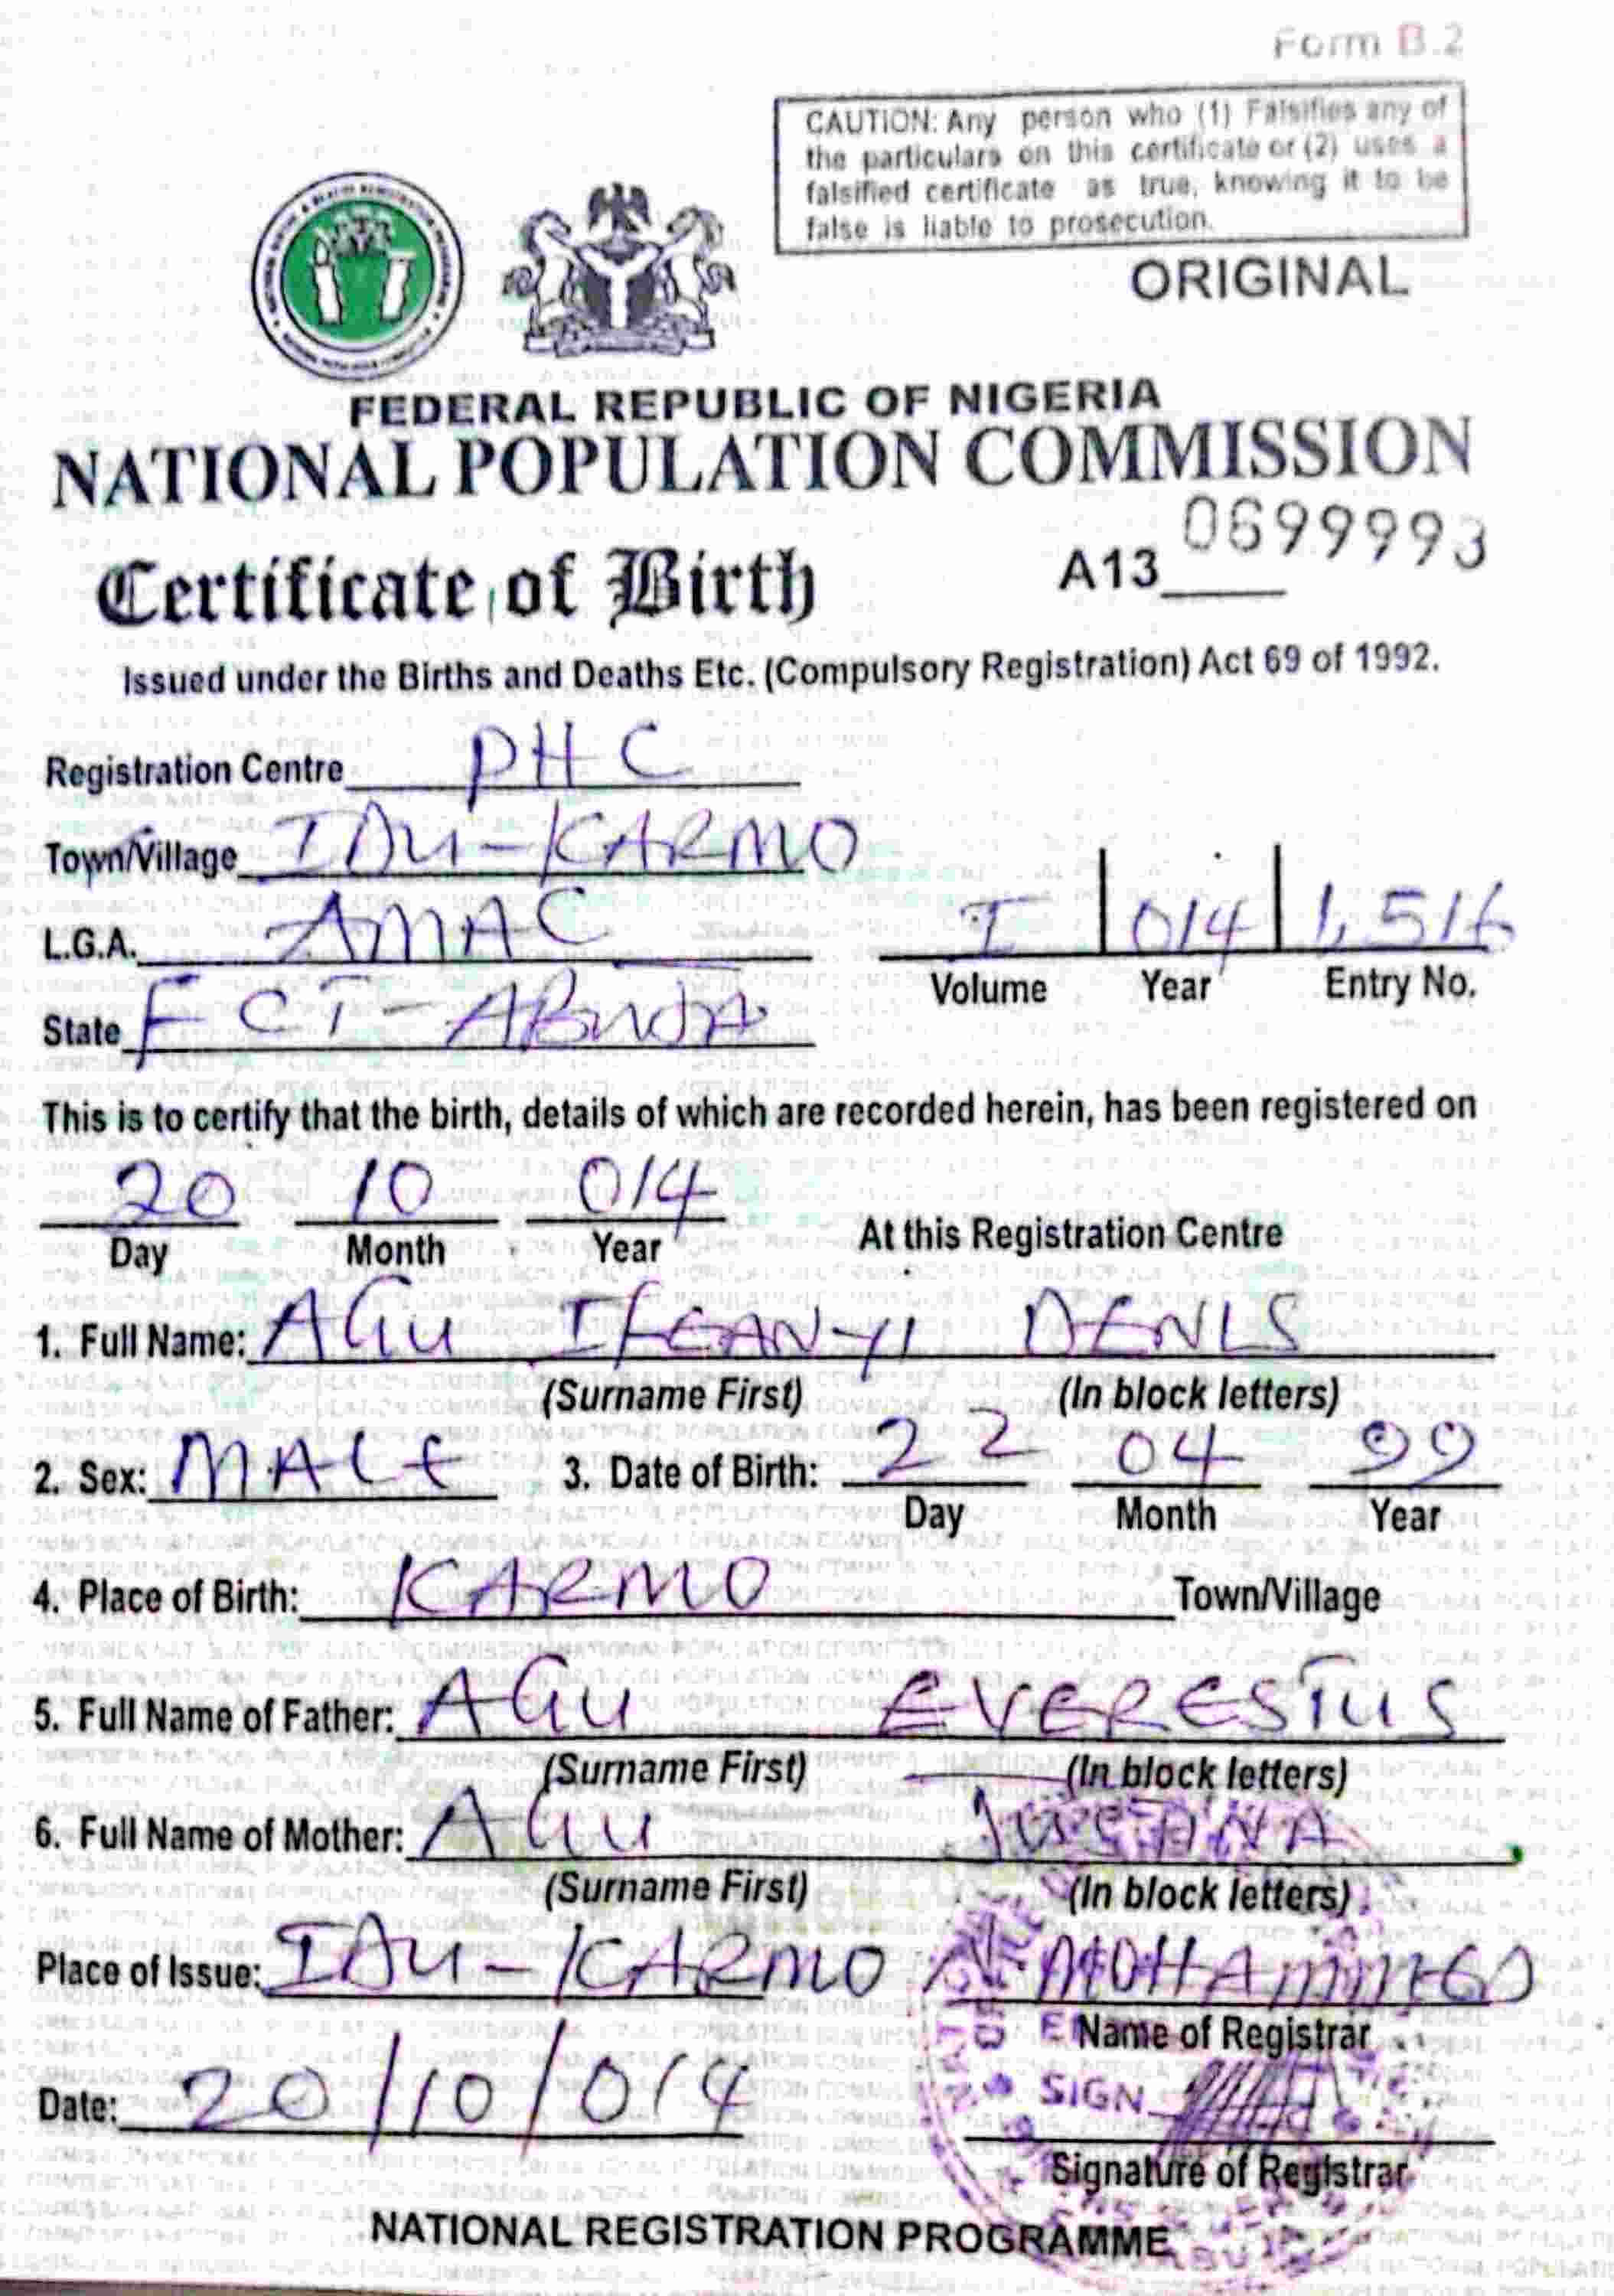 Form B.2
CAUTION: Any person who (1) Falsifies any of
the particulars on this certificate or (2) uses a
falsified certificate as true, knowing it to be
false is liable to prosecution.
ORIGINAL
FEDERAL REPUBLIC OF NIGERIA
NATIONAL POPULATION COMMISSION
Certificate of Birth A13 0699993
Issued under the Births and Deaths Etc. (Compulsory Registration) Act 69 of 1992.
Registration Centre PHC
Town/Village IDU-KARMO
L.G.A. AMAC I 014 1,516
Volume Year Entry No.
State FCT-ABUJA
This is to certify that the birth, details of which are recorded herein, has been registered on
20 10 014
Day Month Year At this Registration Centre
1. Full Name: AGU IFEANYI DENIS
(Surname First) (In block letters)
2. Sex: MALE 3. Date of Birth: 22 04 99
Day Month Year
4. Place of Birth: KARMO Town/Village
5. Full Name of Father: AGU EVERESTUS
(Surname First) (In block letters)
6. Full Name of Mother: AGU
(Surname First) (In block letters)
Place of Issue: IDU-KARMO MOHAMMED
Name of Registrar
SIGN
Date: 20/10/014
Signature of Registrar
NATIONAL REGISTRATION PROGRAMME